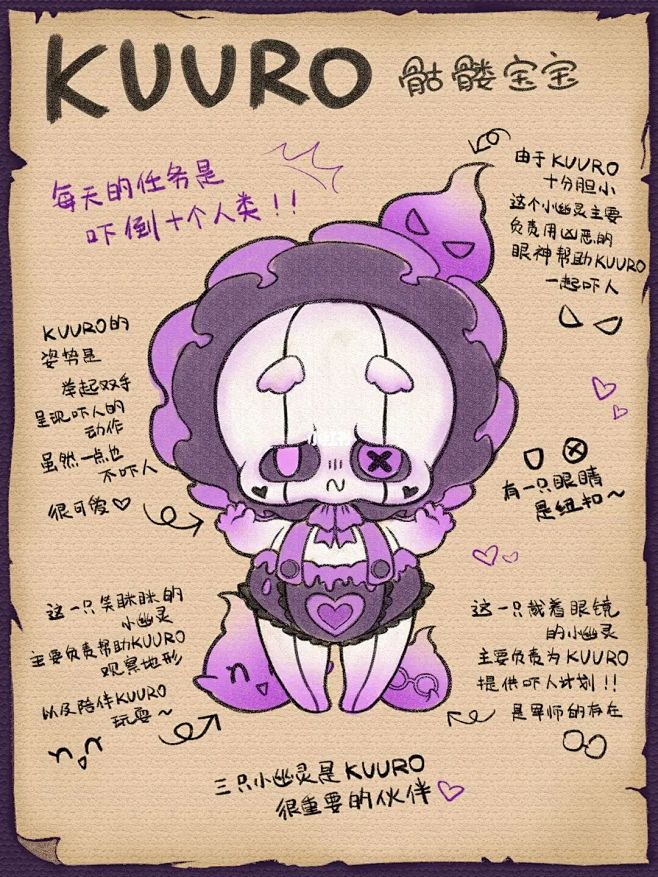 KUURO 骷髅宝宝
每天的任务是
吓倒十个人类！！
由于KUURO
十分胆小
这个小幽灵主要
负责用凶恶的
眼神帮助KUURO
一起吓人
KUURO的
姿势是
举起双手
呈现吓人的
动作
虽然一点也
不吓人
很可爱♡
有一只眼睛
是纽扣～
这一只笑眯眯的
小幽灵
主要负责帮助KUURO
观察地形
以及陪伴KUURO
玩耍～
这一只戴着眼镜
的小幽灵
主要负责为KUURO
提供吓人计划！！
是军师的存在
三只小幽灵是KUURO
很重要的伙伴♡